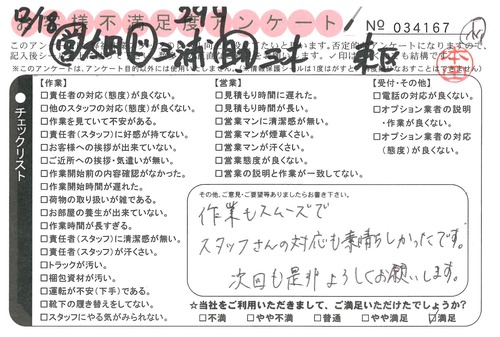 12/18
294
お客様不満足度アンケート
No 034167
東区
※このアンケートは、アンケート目的以外には使用いたしません。
チェックリスト
【作業】
□責任者の対応(態度)が良くない。
□他のスタッフの対応(態度)が良くない。
□作業を見ていて不安がある。
□責任者(スタッフ)に好感が持てない。
□お客様への挨拶が出来ていない。
□ご近所への挨拶・気遣いが無い。
□作業開始前の内容確認がなかった。
□作業開始時間が遅れた。
□荷物の取り扱いが雑である。
□お部屋の養生が出来ていない。
□作業時間が長すぎる。
□責任者(スタッフ)に清潔感が無い。
□責任者(スタッフ)が汗くさい。
□トラックが汚い。
□梱包資材が汚い。
□運転が不安(下手)である。
□靴下の履き替えをしてない。
□スタッフにやる気がみられない。
【営業】
□見積もり時間に遅れた。
□見積もり時間が長い。
□営業マンに清潔感が無い。
□営業マンが煙草くさい。
□営業マンが汗くさい。
□営業態度が良くない。
□営業の説明と作業が一致してない。
【受付・その他】
□電話の対応が良くない。
□オプション業者の説明・作業が良くない。
□オプション業者の対応(態度)が良くない。
その他、ご意見・ご要望等ありましたらお書き下さい。
作業もスムーズで
スタッフさんの対応も素晴らしかったです。
次回も是非よろしくお願いします。
☆当社をご利用いただきまして、ご満足いただけたでしょうか?
□不満 □やや不満 □普通 □やや満足 ☑満足